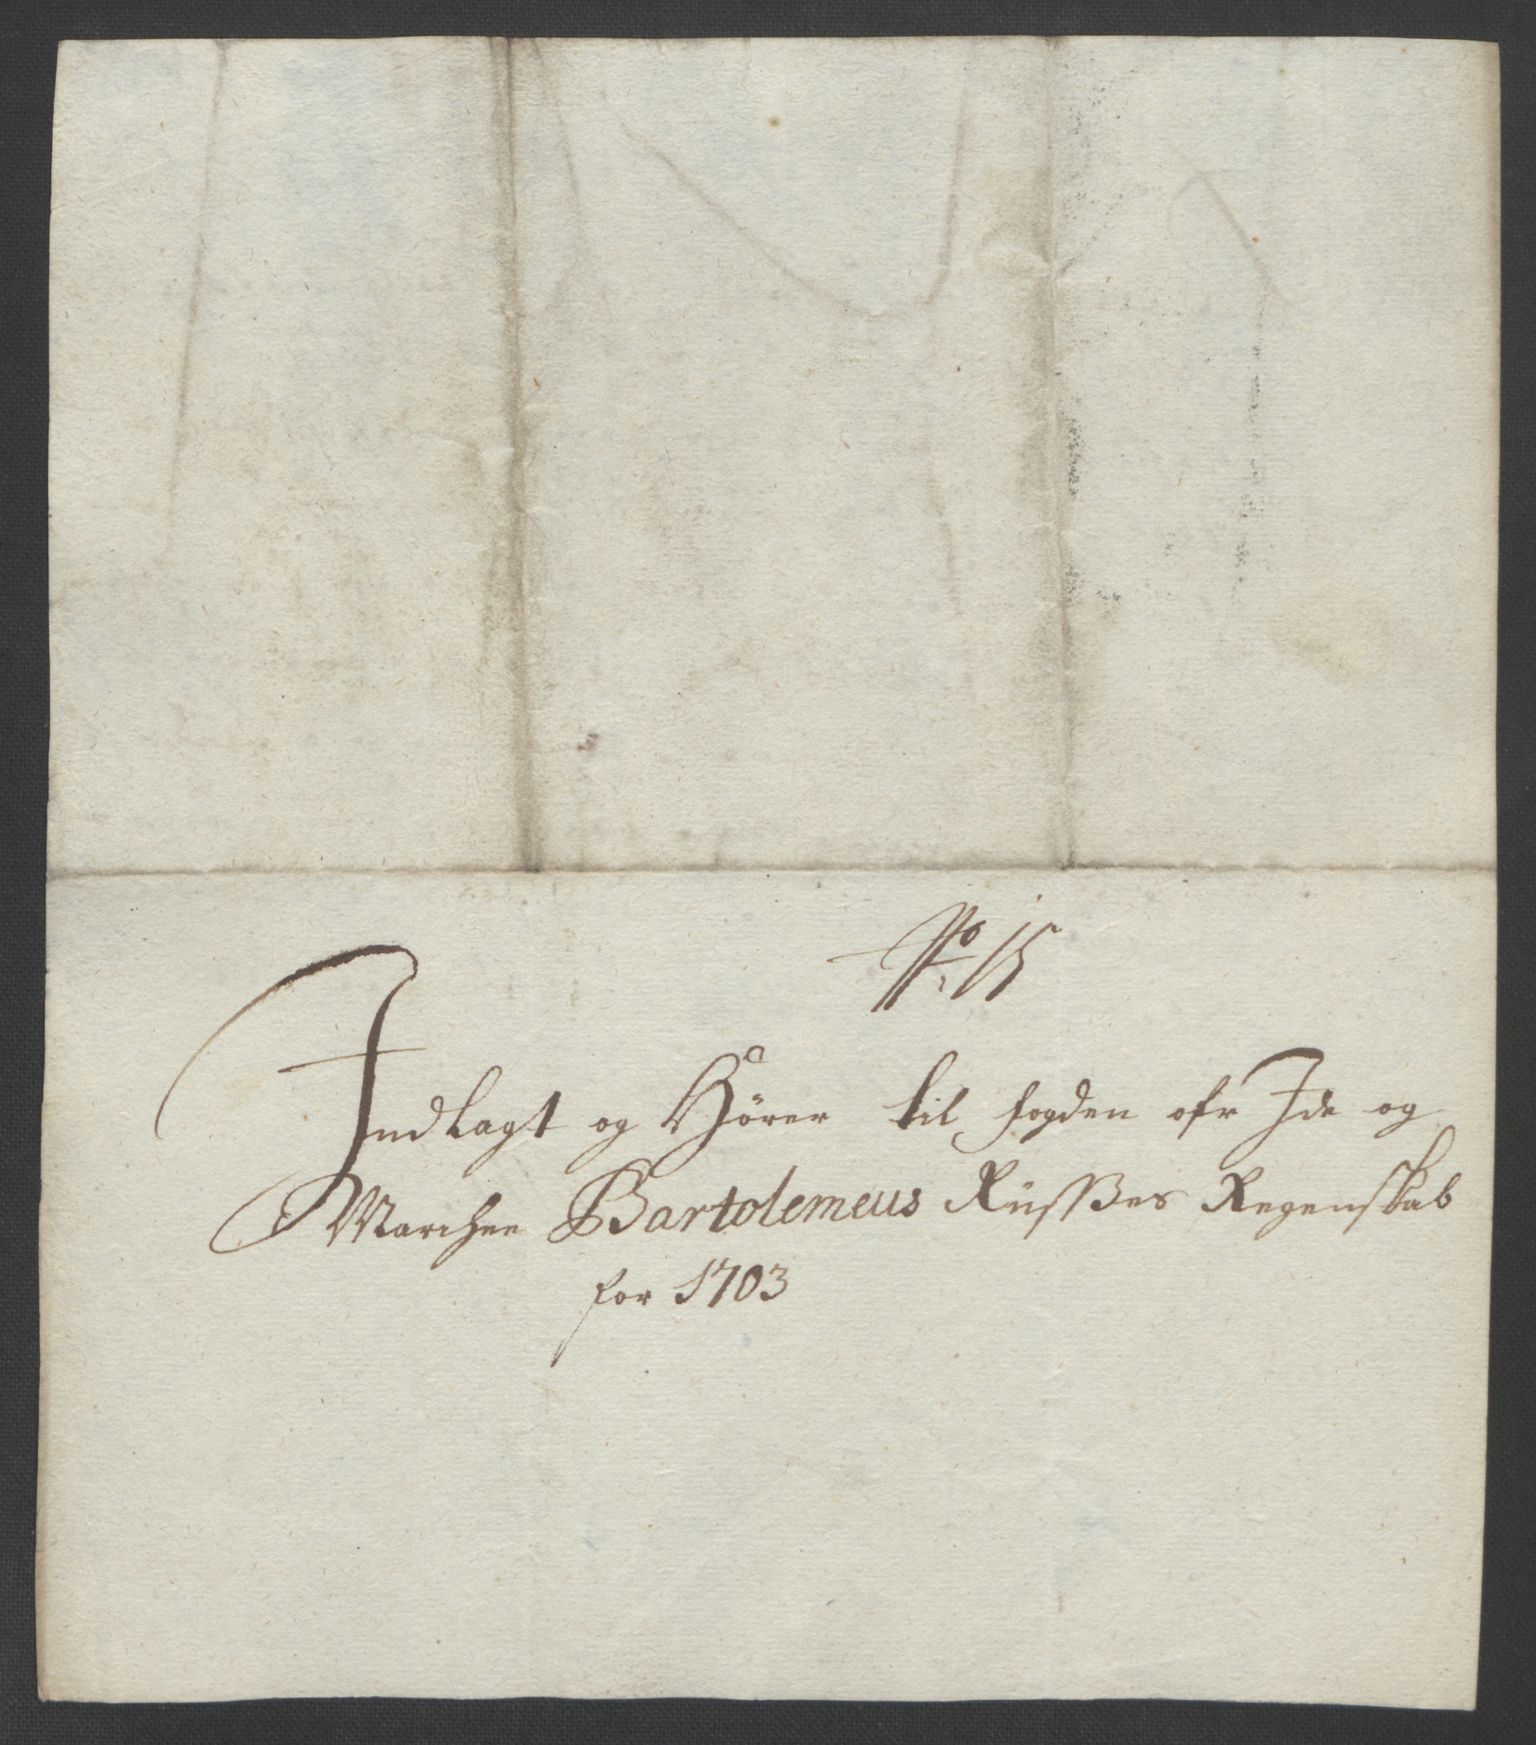 No 15
Indlagt og Hörer til fogden ofr Ide og
Marchee Bartolemeus Rüsses Regenskab
for 1703